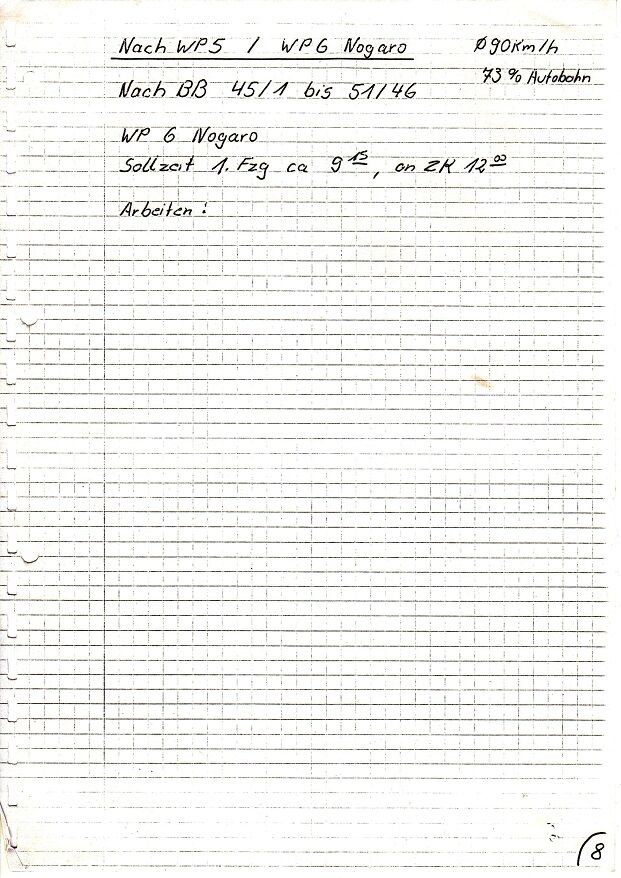 Nach WP5 / WP6 Nogaro Ø90km/h
73% Autobahn
Nach BB 45/1 bis 51/46
WP 6 Nogaro
Sollzeit 1. Fzg ca 9 15, an ZK 12 00
Arbeiten:
8